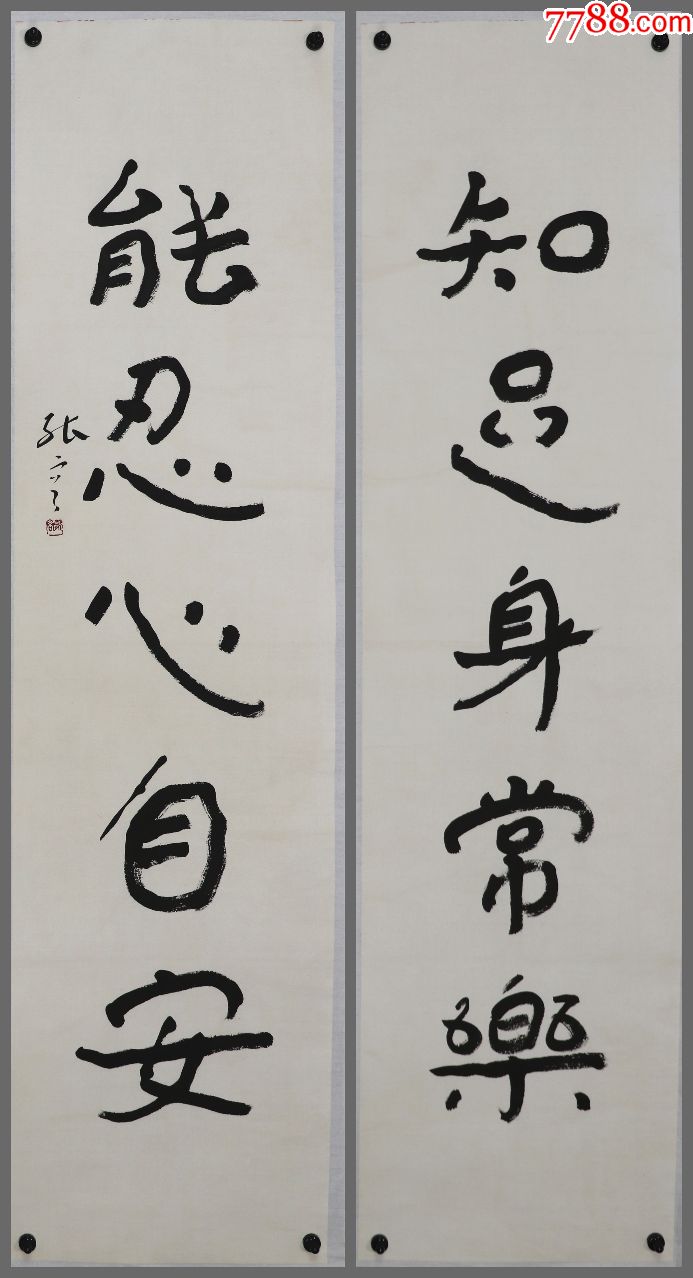 7788.com
知足身常樂
能忍心自安
张